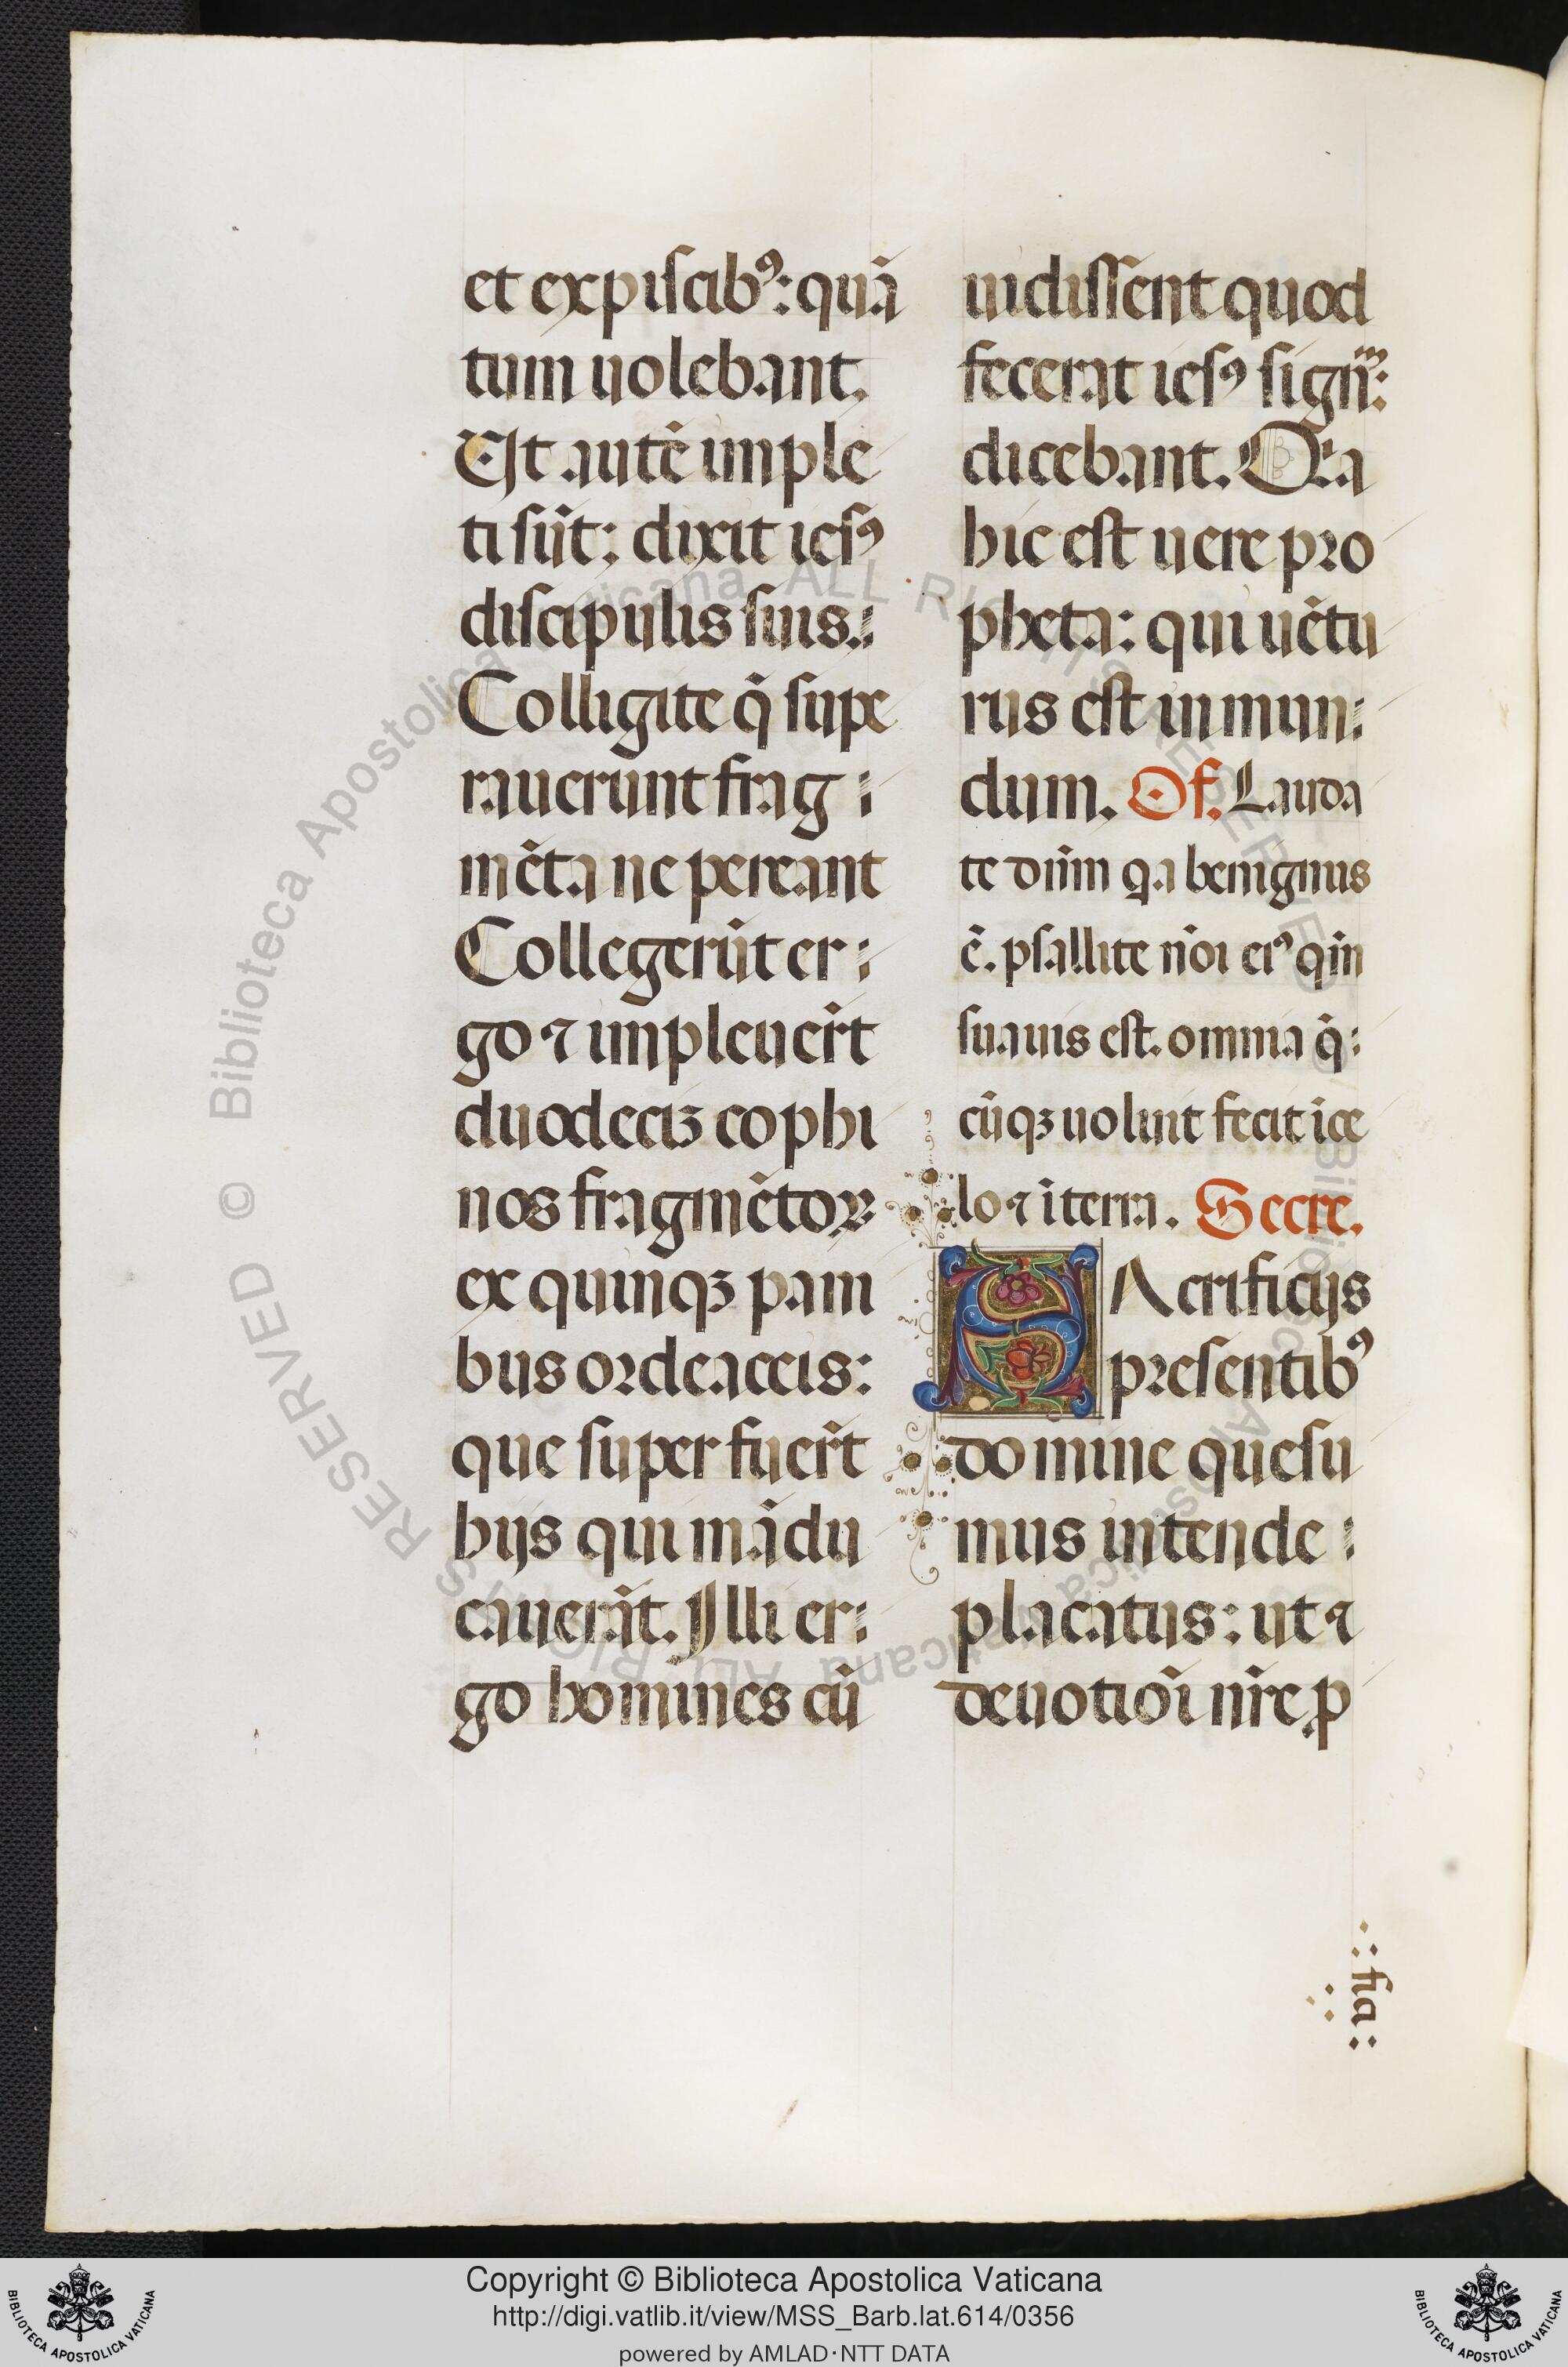 et ex piscibꝰ: quā
tum uolebant.
Ut autē imple
ti sūt: dixit iesꝰ
discipulis suis.:
Colligite q̄ supe
rauerunt frag:
mēta ne pereant
Collegerūt er:
go ⁊ impleuer̄t
duodeciꝫ cophi
nos fragmētoꝝ
ex quinqꝫ pani
bus ordeaceis:
que superfuer̄t
hijs qui mādu
cauerāt. Illi er:
go homines cū
uidissent quod
fecerat iesꝰ signū:
dicebant. Quia
hic est uere pro
pheta: qui uētu
rus est in mun:
dum. Of. Lauda
te dūm qa benignus
ē. psallite nōi eiꝰ qm̄
suauis est. omnia q̄:
cūqꝫ uoluit fecit ī ce
lo ⁊ ī terra. Secre.
SAcrificijs
presentibꝰ
domine quesu
mus intende:
placatus: ut ⁊
deuotiōi nr̄e ꝓ
:: fi a ::
© Biblioteca Apostolica Vaticana ALL RIGHTS RESERVED © Biblioteca Apostolica Vaticana ALL RIGHTS RESERVED
Copyright © Biblioteca Apostolica Vaticana
http://digi.vatlib.it/view/MSS_Barb.lat.614/0356
powered by AMLAD·NTT DATA
BIBLIOTECA APOSTOLICA VATICANA
BIBLIOTECA APOSTOLICA VATICANA